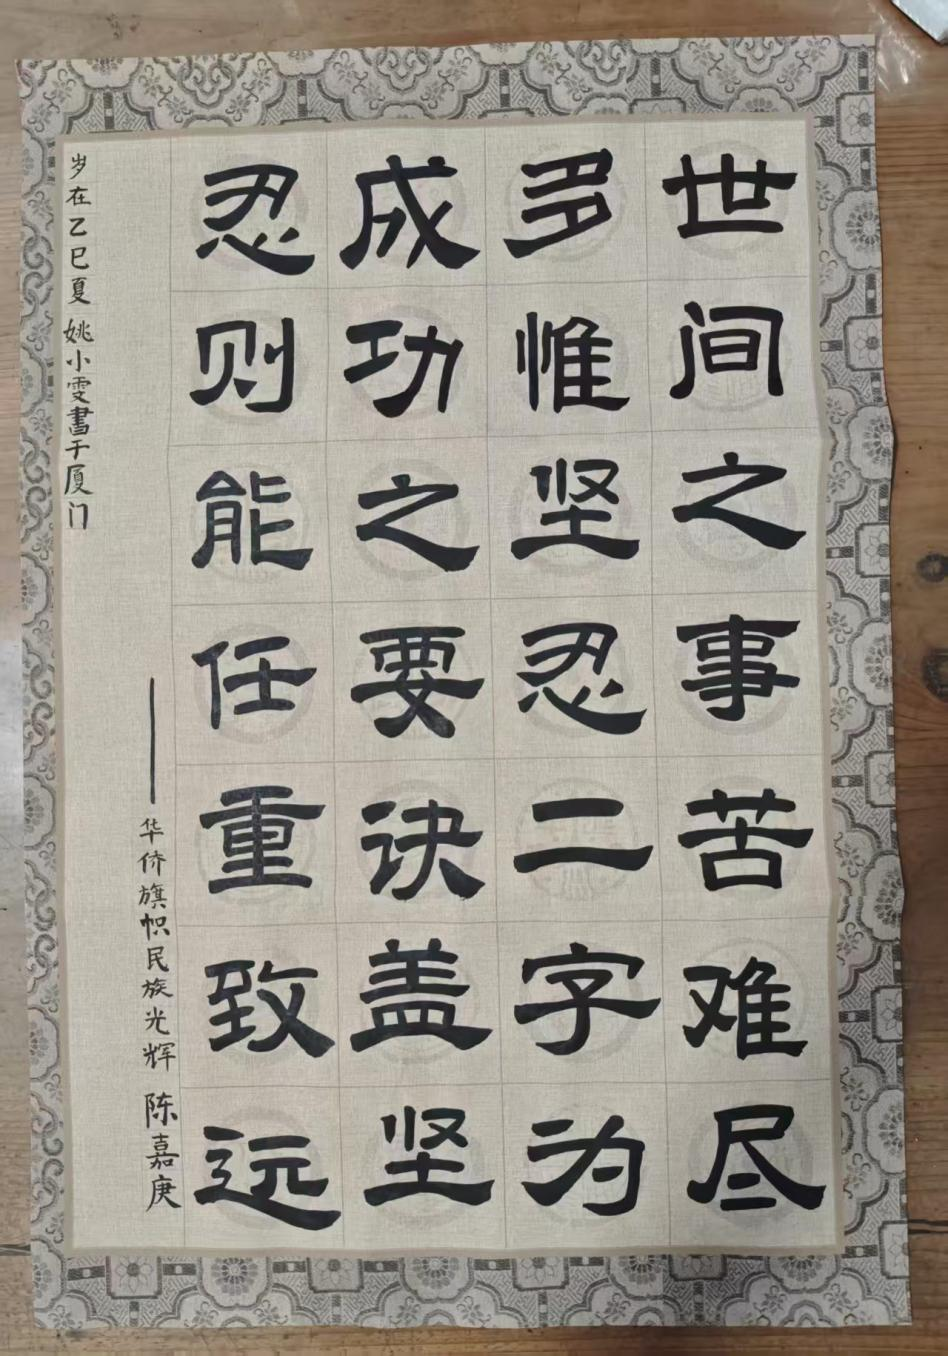 世间之事苦难尽
多惟坚忍二字为
成功之要诀盖坚
忍则能任重致远
——华侨旗帜民族光辉 陈嘉庚
岁在乙巳夏 姚小雯書于厦门